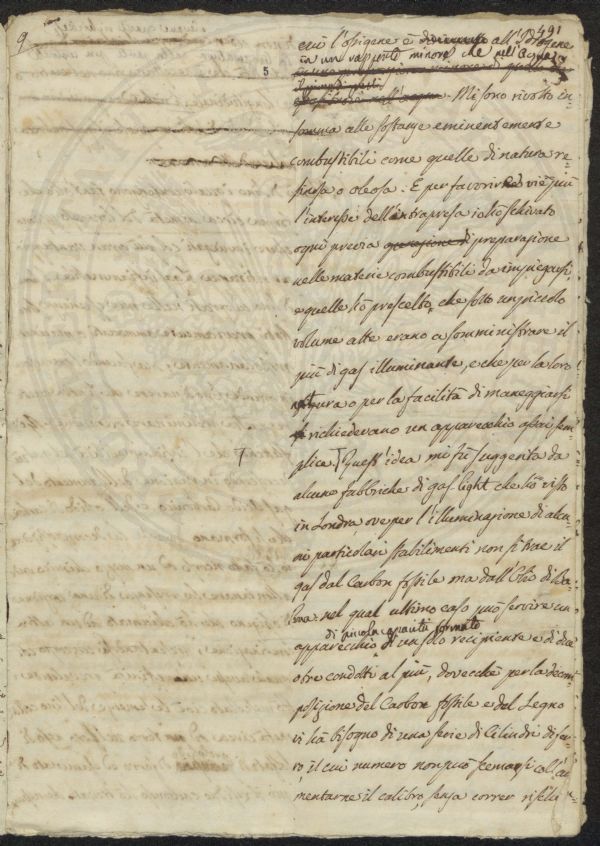 9
491
cui l'ossigene è all'Idrogene
in un rapporto minore che nell'Acqua
5
Mi sono rivolto in=
somma alle sostanze eminentemente
combustibili come quelle di natura re=
sinosa o oleosa. E per favorire viè più
l'interesse dell'intrapresa io hò schivato
ogni previa preparazione
nelle materie combustibili da impiegarsi,
e quelle hò prescelto, che sotto un piccolo
volume atte erano a somministrare il
più di gas illuminante, e che per la loro
natura o per la facilità di maneggiarsi
richiedevano un apparecchio assai sem=
plice. Quest'idea mi fù suggerita da
alcune fabbriche di gas-light che hò visto
in Londra, ove per l'illuminazione di alcu=
ni particolari stabilimenti non si trae il
gas dal Carbon fossile ma dall'Olio di
nel qual ultimo caso può servire un
di piccola capacità formato
apparecchio di un solo recipiente e di due
o tre condotti al più, dovecchè per la decom=
posizione del Carbon fossile e del Legno
vi hà bisogno di una serie di Cilindri di fer=
ro, il cui numero non può scemarsi coll'au=
mentarne il calibro, senza correr rischi